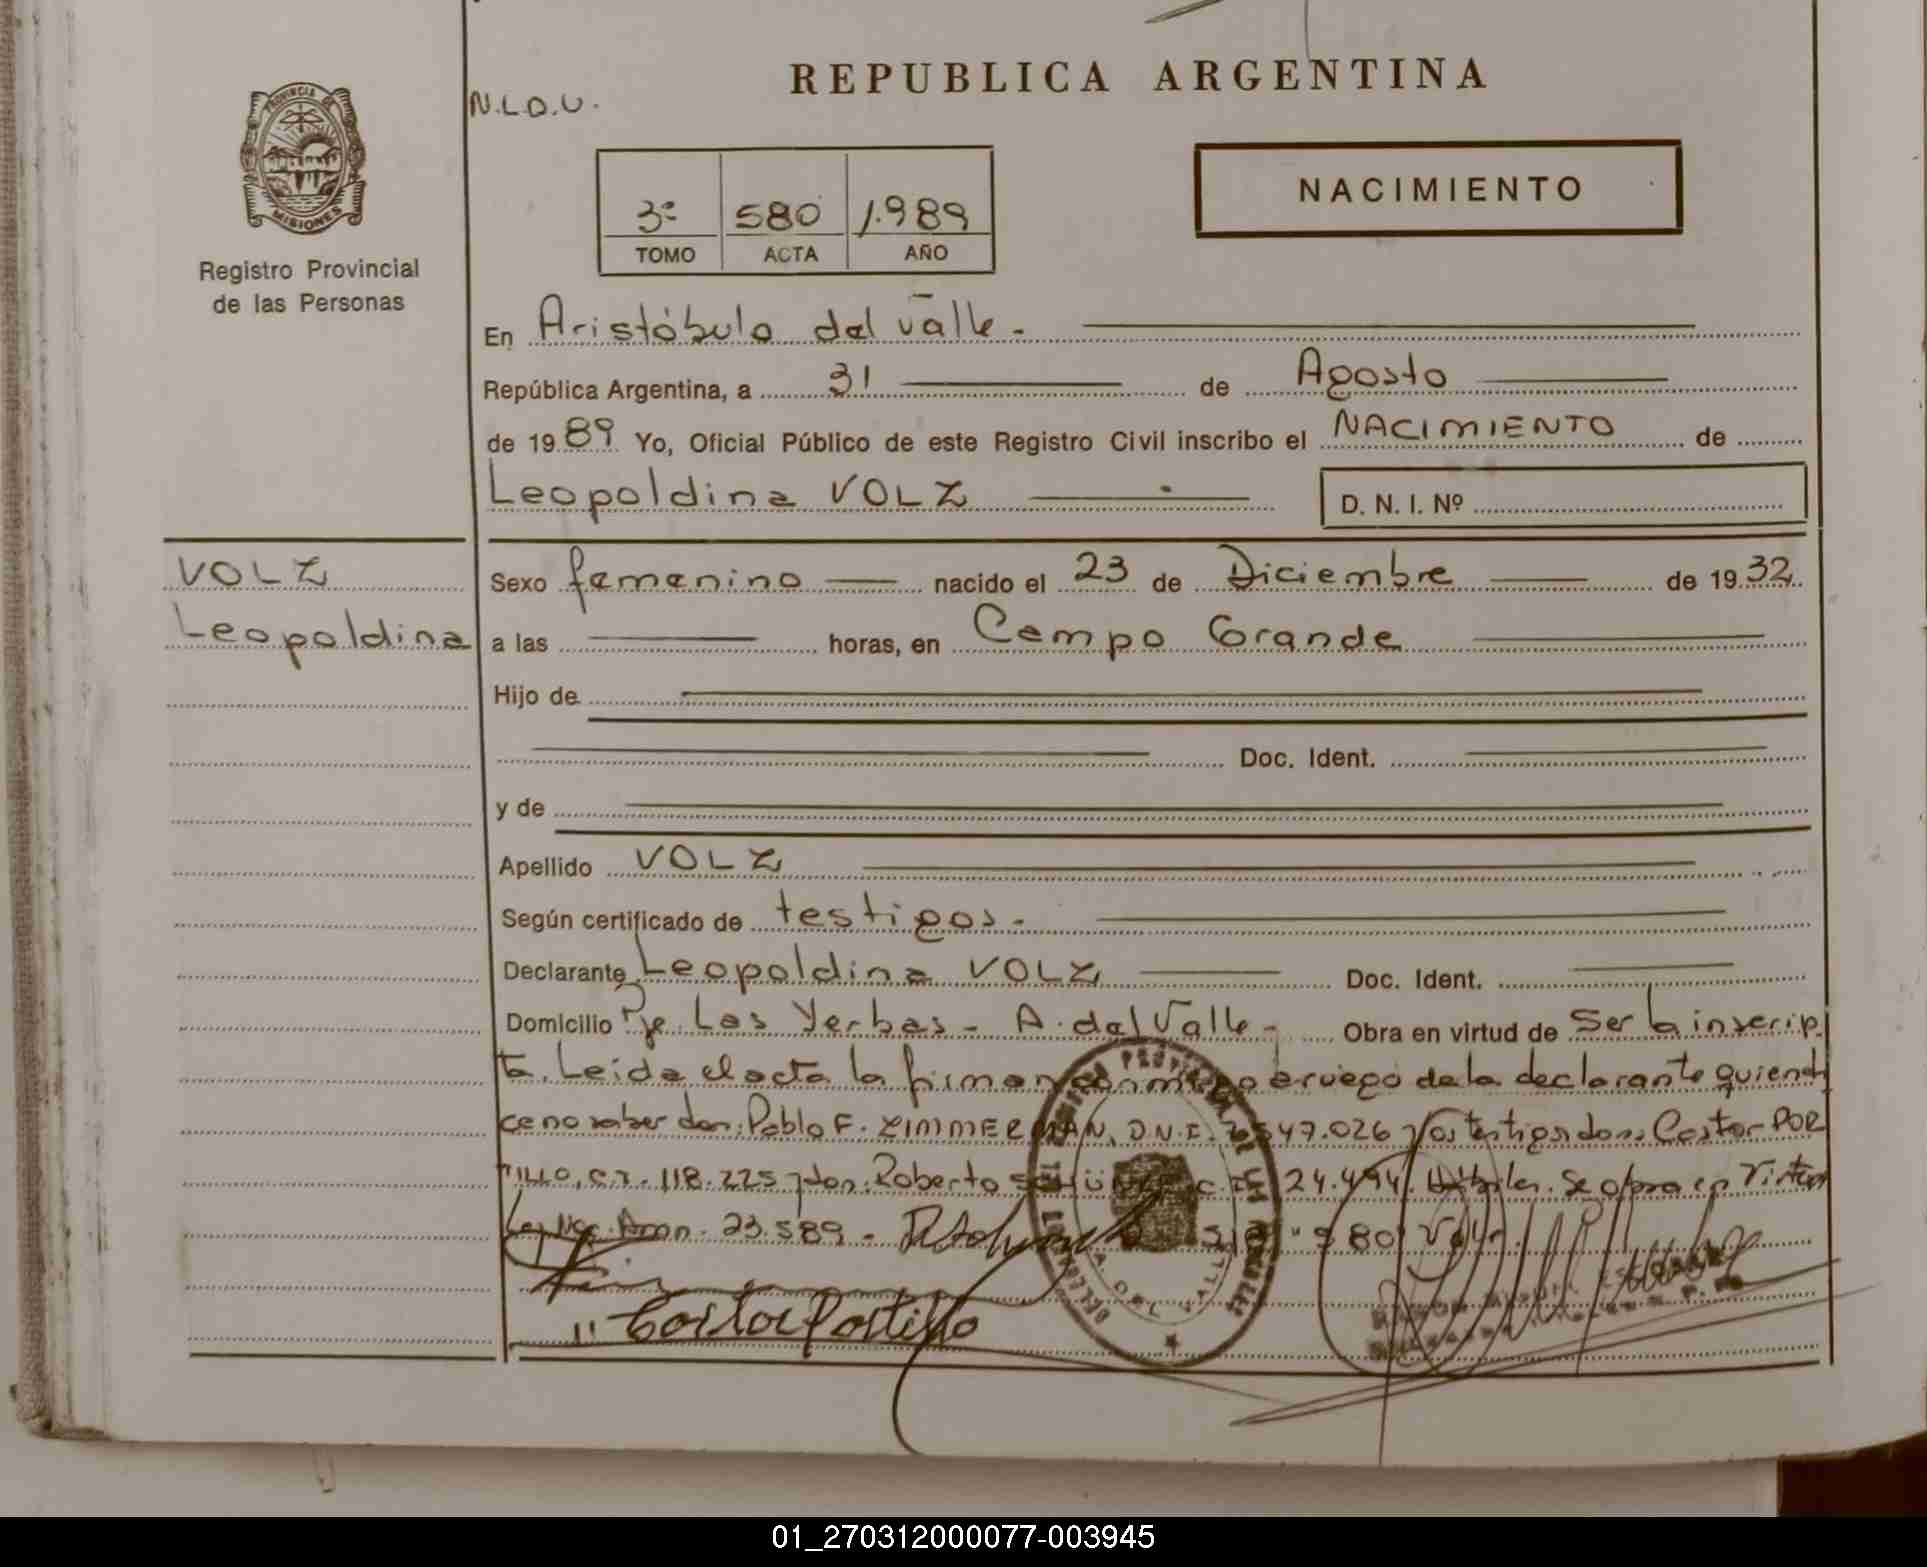 REPUBLICA ARGENTINA
N.L.O.U.
PROVINCIA DE
MISIONES
Registro Provincial
de las Personas
3º 580 1.989
TOMO ACTA AÑO
NACIMIENTO
En Aristóbulo del Valle.
República Argentina, a 31 de Agosto
de 1989 Yo, Oficial Público de este Registro Civil inscribo el NACIMIENTO de
Leopoldina VOLZ D. N. I. Nº
VOLZ
Leopoldina
Sexo femenino nacido el 23 de Diciembre de 1932
a las horas, en Campo Grande
Hijo de
Doc. Ident.
y de
Apellido VOLZ
Según certificado de testigos.
Declarante Leopoldina VOLZ Doc. Ident.
Domicilio Pje. Las Yerbas - A. del Valle - Obra en virtud de ser la inscrip
ta. Leida el acta la firman conmigo a ruego de la declarante quien di
ce no saber don: Pablo F. ZIMMERMAN, D.N.I. 47.026 y los testigos dons. Castor POR
TILLO, C.I. 118.225 y don: Roberto C.I. 24.494. Se obra en virtud
Ley Nac. 23.589 -
580 Vale.
Castor Portillo
01_270312000077-003945